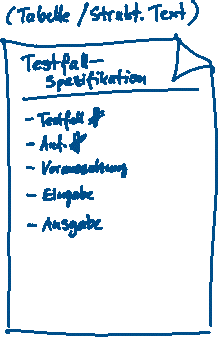 (Tabelle / Strukt. Text)
Testfall-
Spezifikation
- Testfall #
- Anf. #
- Voraussetzung
- Eingabe
- Ausgabe